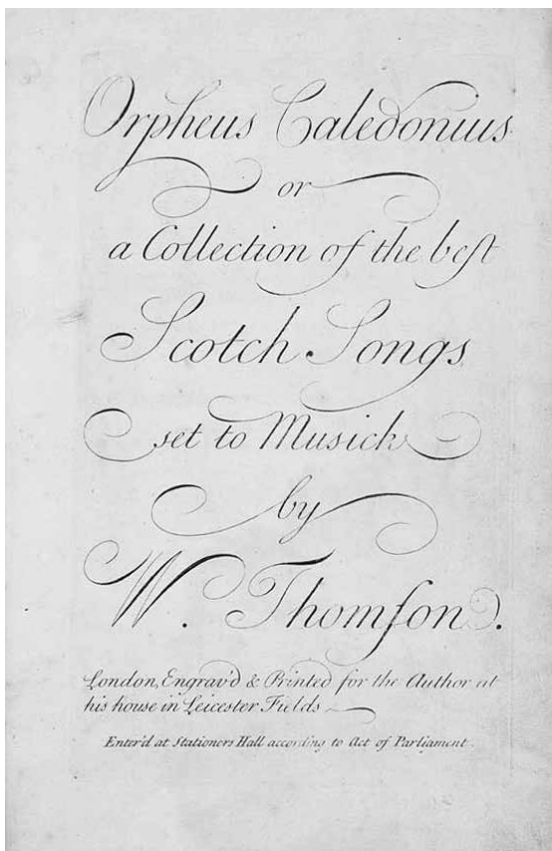 Orpheus Caledonius
or
a Collection of the beſt
Scotch Songs
set to Musick
by
W. Thomſon.
London, Engrav'd & Printed for the Author at
his house in Leicester Fields
Enter'd at Stationers Hall according to Act of Parliament